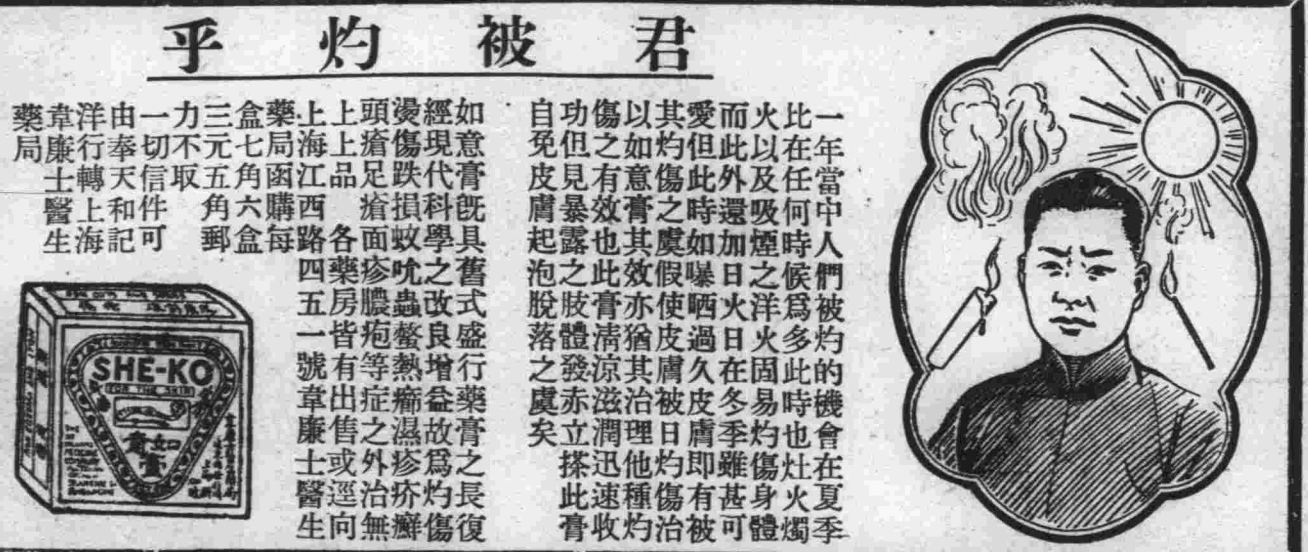 君被灼乎
一年當中人們被灼的機會在夏季
比在任何時候爲多此時也灶火燭
火以及吸煙之洋火固易灼傷身體
而此外還加日火日在冬季雖甚可
愛但此時如曝晒過久皮膚即有被
其灼傷之虞假使皮膚被日灼傷治
以如意膏其效亦猶其治理他種灼
傷之有效也此膏淸涼滋潤迅速收
功但見暴露之肢體發赤立搽此膏
自免皮膚起泡脫落之虞矣
如意膏旣具舊式盛行藥膏之長復
經現代科學之改良增益故爲灼傷
燙傷跌損蚊吮蟲螫熱癤濕疹疥癬
頭瘡足瘡面疹膿疱等症之外治無
上上品 各藥房皆有出售或逕向
上海江西路四五一號韋廉士醫生
藥局函購每
盒七角六盒
三元五角郵
力不取
一切信件可
由奉天和記
洋行轉上海
韋廉士醫生
藥局
SHE-KO
FOR THE SKIN
如意膏